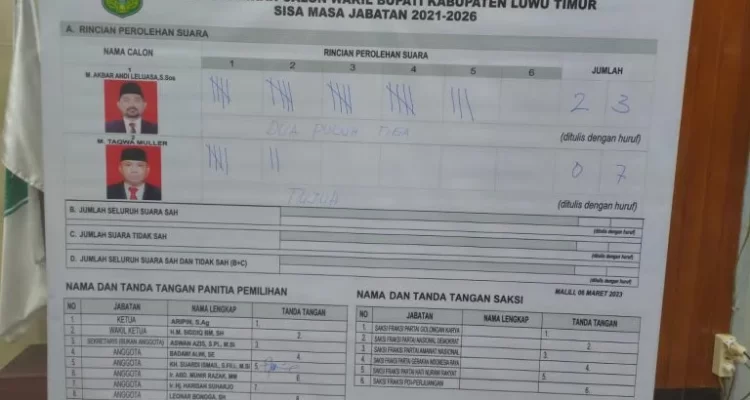 CALON WAKIL BUPATI KABUPATEN LUWU TIMUR
SISA MASA JABATAN 2021-2026
A. RINCIAN PEROLEHAN SUARA
NAMA CALON RINCIAN PEROLEHAN SUARA JUMLAH
1 2 3 4 5 6
1
M. AKBAR ANDI LELUASA,S.Sos
2 3
DUA PULUH TIGA (ditulis dengan huruf)
2
M. TAQWA MULLER
0 7
TUJUH (ditulis dengan huruf)
B. JUMLAH SELURUH SUARA SAH
(ditulis dengan huruf)
C. JUMLAH SUARA TIDAK SAH
(ditulis dengan huruf)
D. JUMLAH SELURUH SUARA SAH DAN TIDAK SAH (B+C)
(ditulis dengan huruf)
MALILI, 06 MARET 2023
NAMA DAN TANDA TANGAN PANITIA PEMILIHAN
NO JABATAN NAMA LENGKAP TANDA TANGAN
1 KETUA ARIPIN, S.Ag 1.
2 WAKIL KETUA H.M. SIDDIQ BM, SH 2.
3 SEKRETARIS (BUKAN ANGGOTA) ASWAN AZIS, S.Pi., M.Si 3.
4 ANGGOTA BADAWI ALWI, SE 4.
5 ANGGOTA KH. SUARDI ISMAIL, S.Fil., M.Si 5.
6 ANGGOTA Ir. ABD. MUNIR RAZAK, MM 6.
7 ANGGOTA Ir. Hj. HARISAH SUHARJO 7.
8 ANGGOTA LEONAR BONGGA, SH
NAMA DAN TANDA TANGAN SAKSI
NO JABATAN NAMA LENGKAP TANDA TANGAN
1. SAKSI FRAKSI PARTAI GOLONGAN KARYA 1.
2. SAKSI FRAKSI PARTAI NASIONAL DEMOKRAT 2.
3. SAKSI FRAKSI PARTAI AMANAT NASIONAL 3.
4. SAKSI FRAKSI PARTAI GERAKAN INDONESIA RAYA 4.
5. SAKSI FRAKSI PARTAI HATI NURANI RAKYAT 5.
6. SAKSI FRAKSI PDI-PERJUANGAN 6.